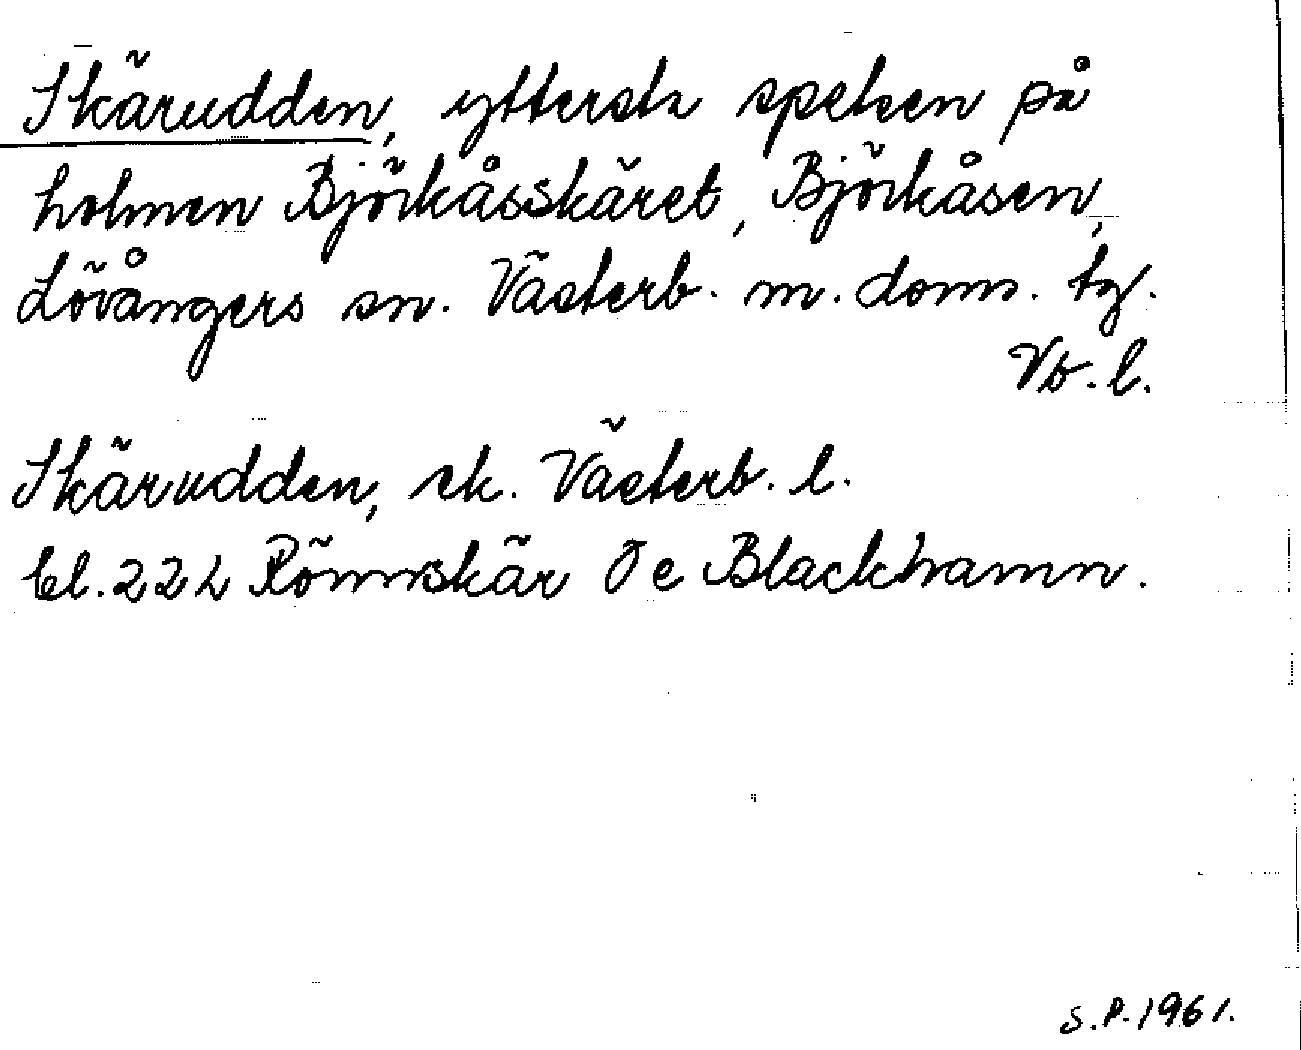 Skärudden, yttersta spetsen på
holmen Björkåsskäret, Björkåsen,
Lövångers sn. Västerb. m. doms. tg.
Vb. l.
Skärudden, sk. Västerb. l.
bl. 22 L Rönnskär O e Blackhamn.
S.P. 1961.